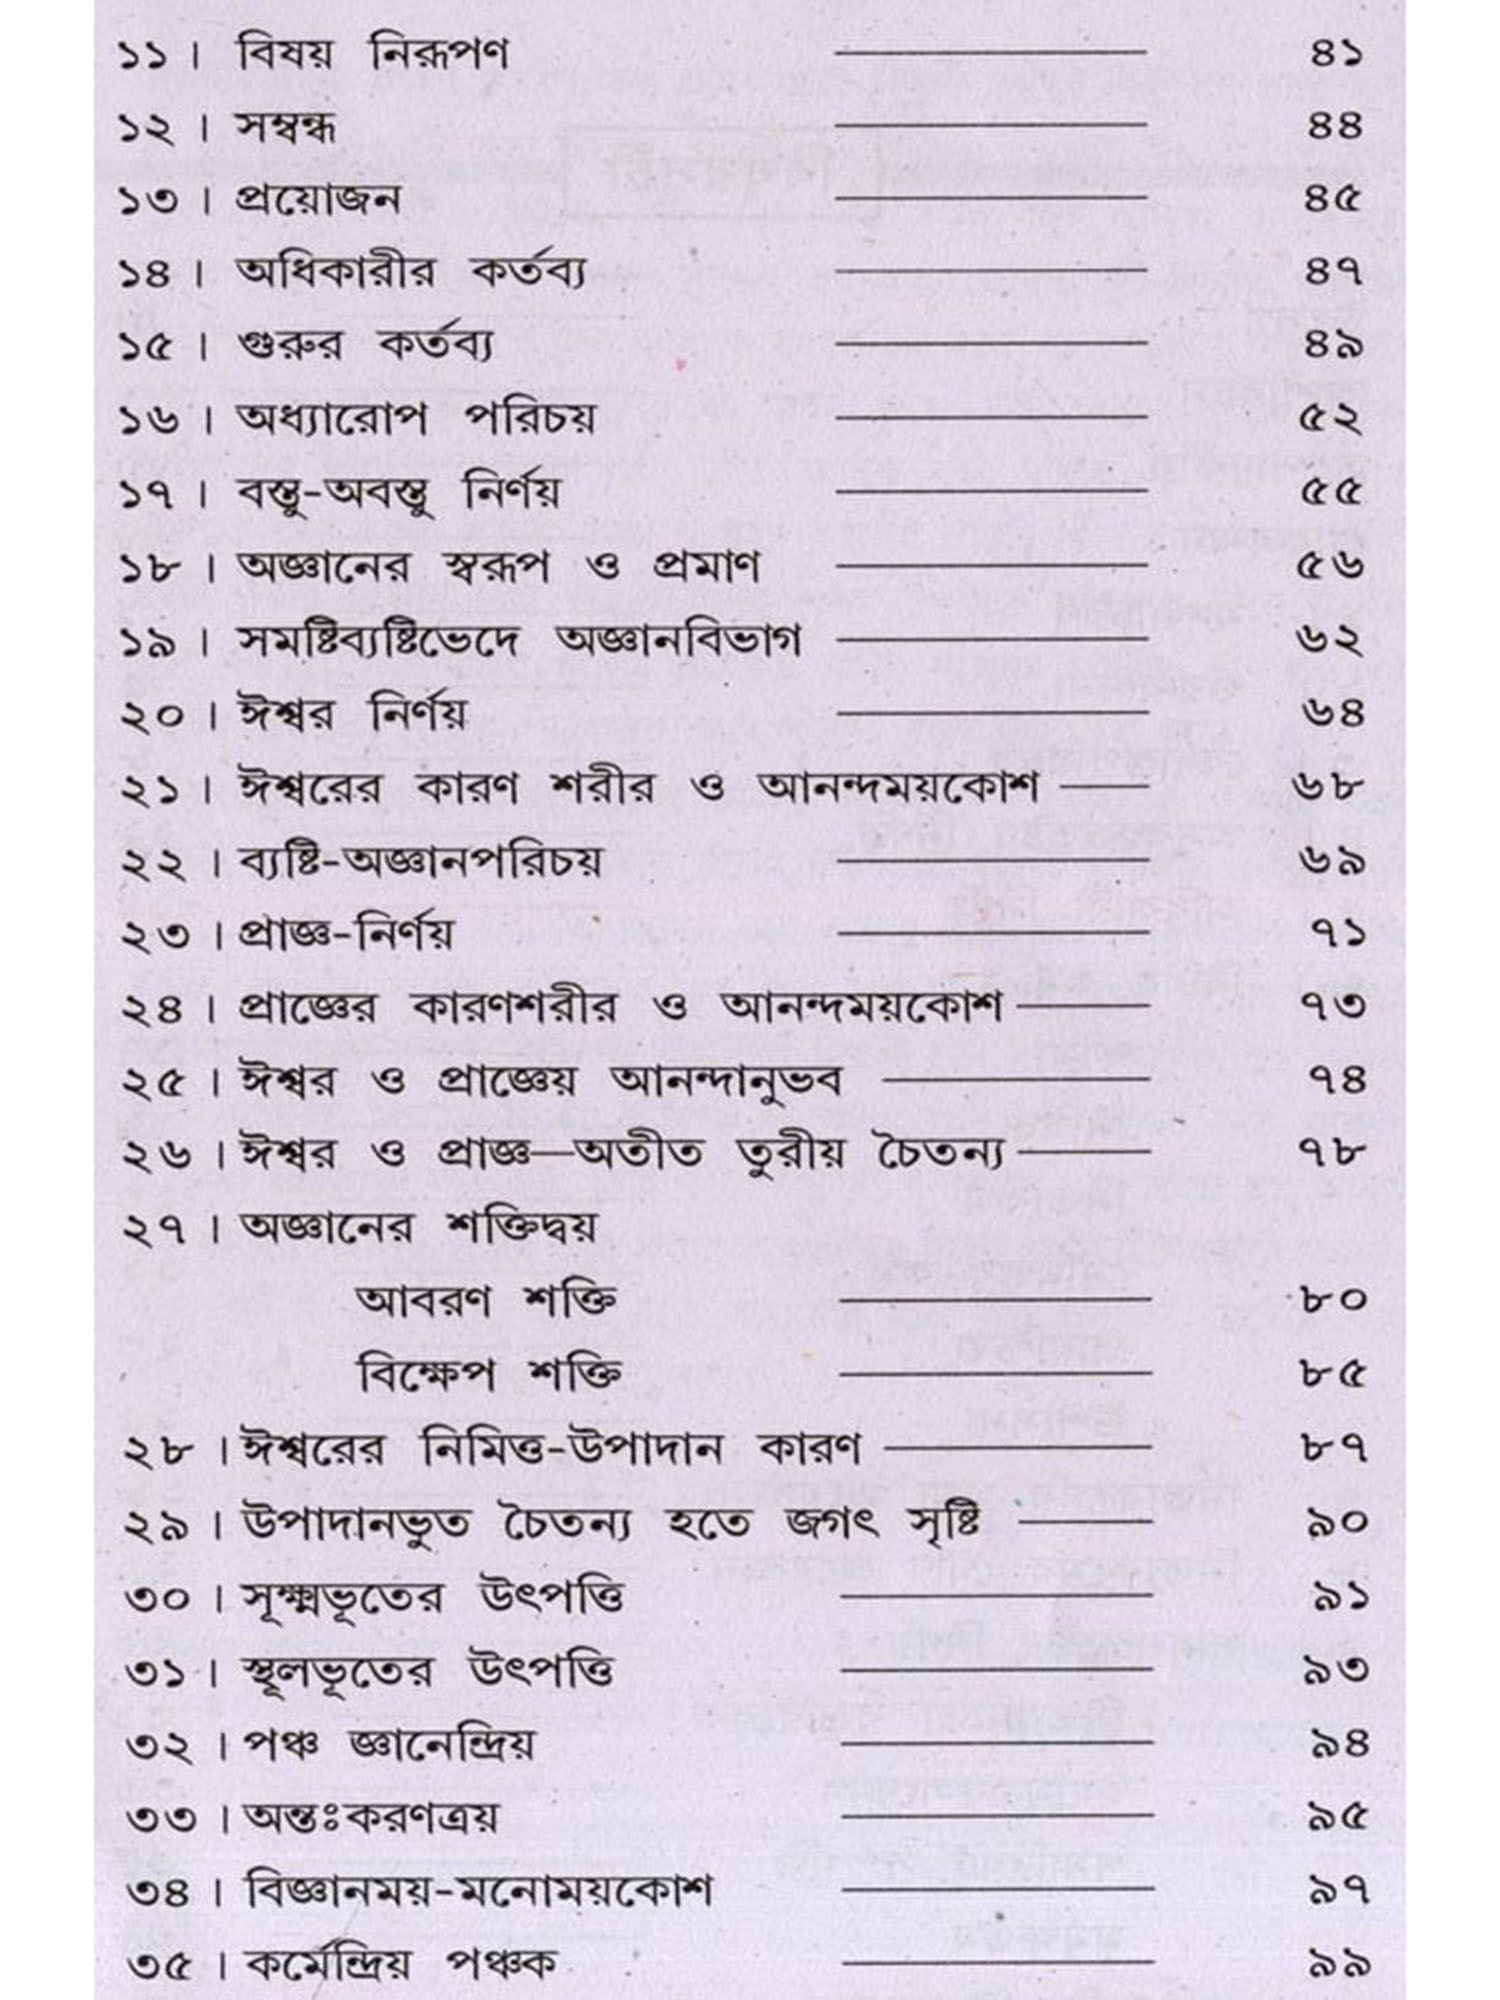 ১১। বিষয় নিরূপণ ———— ৪১
১২। সম্বন্ধ ———— ৪৪
১৩। প্রয়োজন ———— ৪৫
১৪। অধিকারীর কর্তব্য ———— ৪৭
১৫। গুরুর কর্তব্য ———— ৪৯
১৬। অধ্যারোপ পরিচয় ———— ৫২
১৭। বস্তু-অবস্তু নির্ণয় ———— ৫৫
১৮। অজ্ঞানের স্বরূপ ও প্রমাণ ———— ৫৬
১৯। সমষ্টিব্যষ্টিভেদে অজ্ঞানবিভাগ ———— ৬২
২০। ঈশ্বর নির্ণয় ———— ৬৪
২১। ঈশ্বরের কারণ শরীর ও আনন্দময়কোশ —— ৬৮
২২। ব্যষ্টি-অজ্ঞানপরিচয় ———— ৬৯
২৩। প্রাজ্ঞ-নির্ণয় ———— ৭১
২৪। প্রাজ্ঞের কারণশরীর ও আনন্দময়কোশ —— ৭৩
২৫। ঈশ্বর ও প্রাজ্ঞেয় আনন্দানুভব ———— ৭৪
২৬। ঈশ্বর ও প্রাজ্ঞ—অতীত তুরীয় চৈতন্য —— ৭৮
২৭। অজ্ঞানের শক্তিদ্বয়
আবরণ শক্তি ———— ৮০
বিক্ষেপ শক্তি ———— ৮৫
২৮। ঈশ্বরের নিমিত্ত-উপাদান কারণ ———— ৮৭
২৯। উপাদানভুত চৈতন্য হতে জগৎ সৃষ্টি —— ৯০
৩০। সূক্ষ্মভূতের উৎপত্তি ———— ৯১
৩১। স্থূলভূতের উৎপত্তি ———— ৯৩
৩২। পঞ্চ জ্ঞানেন্দ্রিয় ———— ৯৪
৩৩। অন্তঃকরণত্রয় ———— ৯৫
৩৪। বিজ্ঞানময়-মনোময়কোশ ———— ৯৭
৩৫। কর্মেন্দ্রিয় পঞ্চক ———— ৯৯